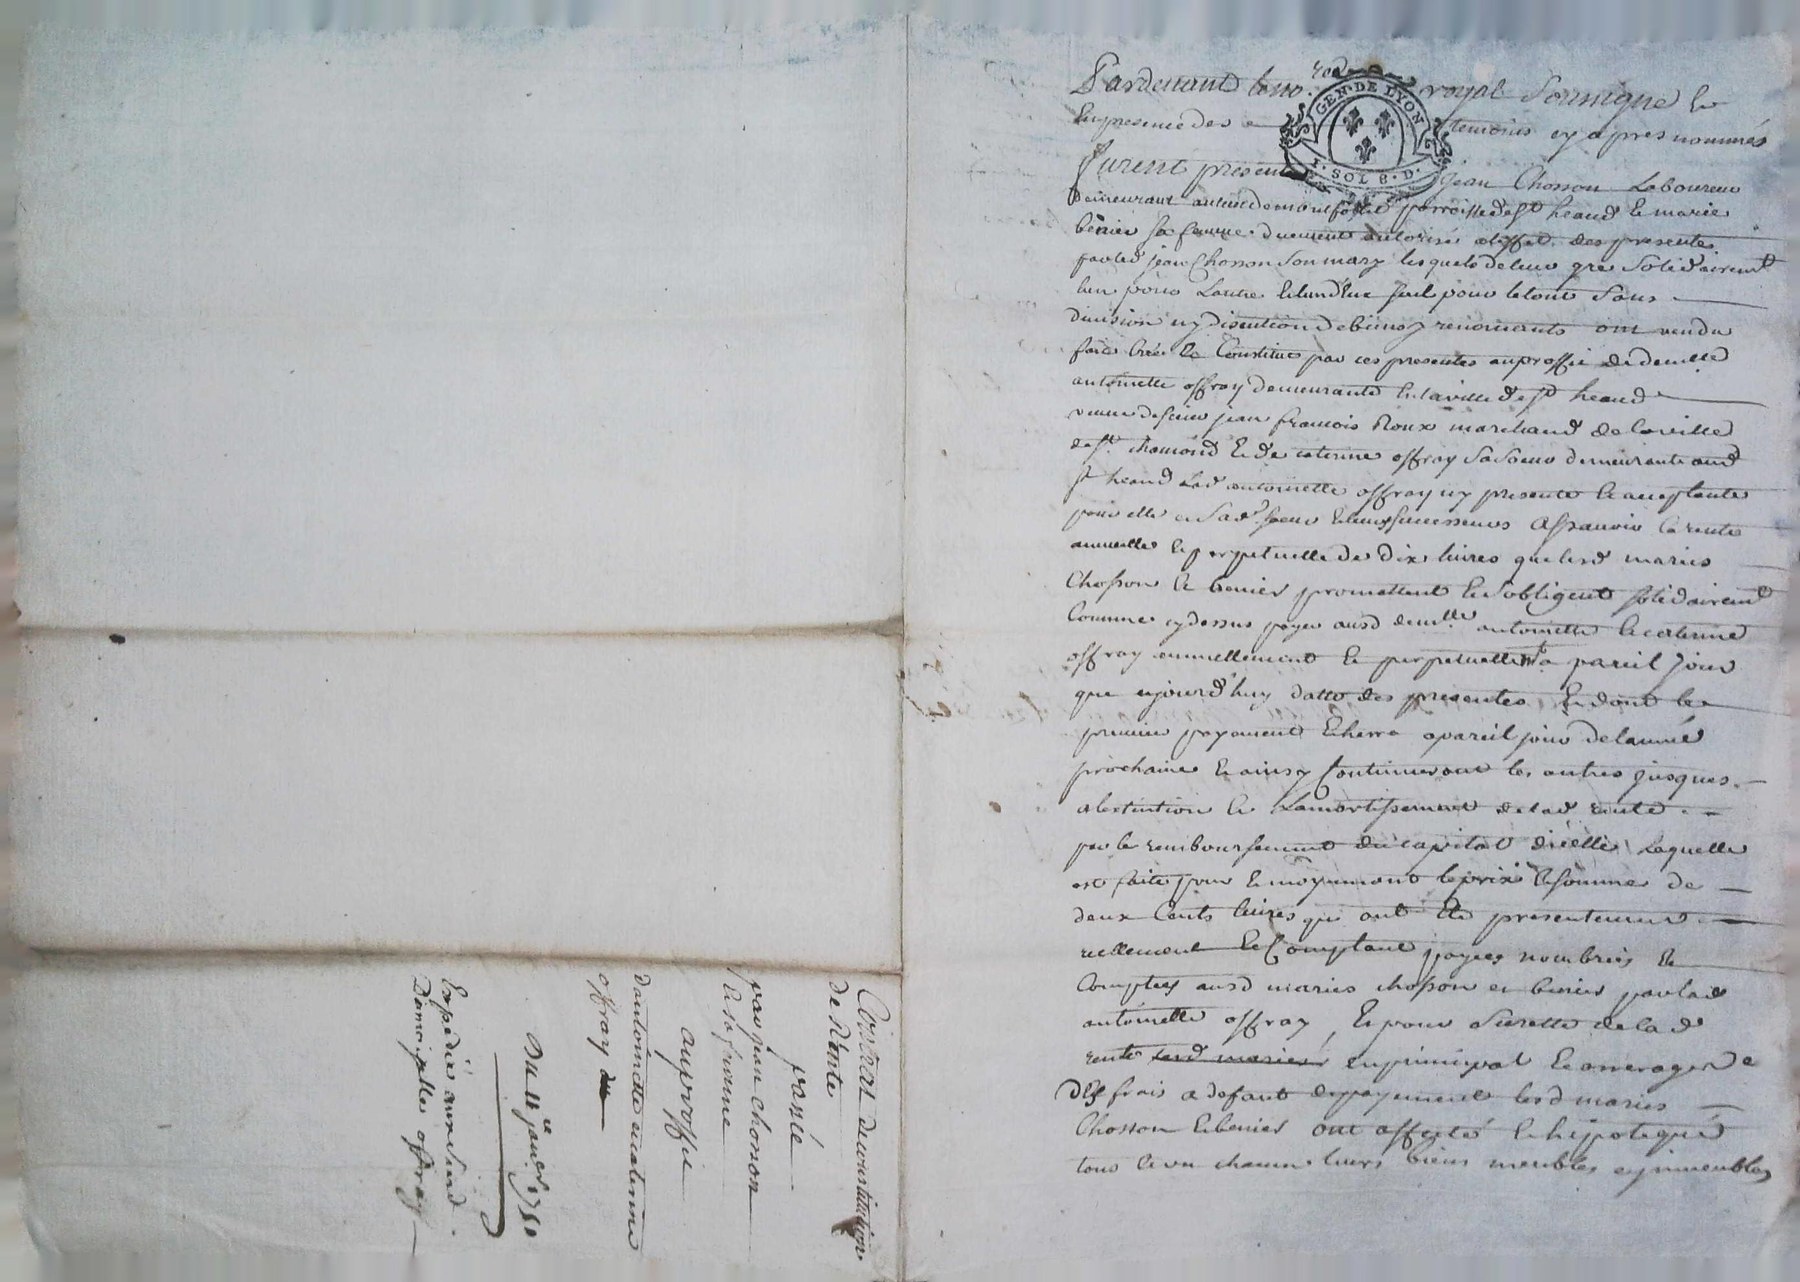 Pardevant le no.re royal soussigne et
En presence des temoins cy apres nommés
GEN. DE LYON
1. SOL 8. D.
furent presents Jean Chosson Laboureur
demeurant au lieu de montfollet parroisse de st heand et marie
benier sa femme duement autorisée a leffet des presentes
par led jean Chosson son mary lesquels de leur gré solidairemt
lun pour Lautre et lun deux seul pour le tout sans
division ny discution de biens y renoncants ont vendu
fait créé et Constitué par ces presentes au proffit de demlle
antoinette offray demeurante en la ville de st heand
veuve de sieur jean francois Roux marchand de la ville
de st. chamond et de caterine offray sa soeur demeurante aud
st heand lad antoinette offray icy presente et acceptante
pour elle et sad. soeur et leurs successeurs assavoir la rente
annuelle et perpetuelle de dix livres que lesd mariés
Chosson et benier promettent et sobligent solidairemt
Comme cy dessus payer ausd demlles antoinette et caterine
offray annuellement et perpetuellemt a pareil jour
que aujourd'huy datte des presentes et dont le
premier payement Echerra a pareil jour de lannée
prochaine et ainsy Continueront les autres jusques
a lextinction et Lamortissement de lad rente
par le remboursement du capital dicelle Laquelle
est faite pour et moyennant le prix et somme de
deux Cents livres qui ont Eté presentement
reellement et Comptant payés nombrés et
Comptés ausd mariés chosson et benier par lad
antoinette offray, Et pour Surette de la d
rente lesd mariés en principal et arrerages et
des frais a defaut de payement lesd mariés
Chosson et benier ont affecté et hipotequé
tous et un chacun leurs biens meubles et immeubles
Contrat de constitution
de Rente
passée
par jean chosson
et sa femme
au proffit
dantoinette et caterine
offray
Du 11e janer 1750
Expedié aux Sieurd.
Demoiselle offray